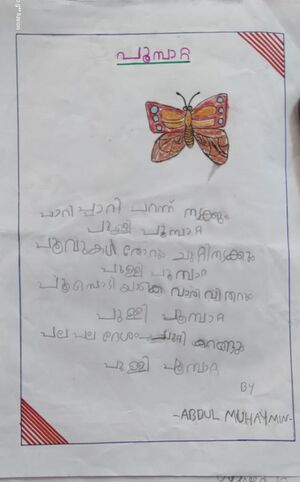 പൂമ്പാറ്റ
പാറിപ്പാറി പറന്ന് നടക്കും
പുള്ളി പൂമ്പാറ്റ
പൂവുകൾ തോറും ചുറ്റിനടക്കും
പുള്ളി പൂമ്പാറ്റ
പൂമ്പൊടി യാകെ വാരി വിതറും
പുള്ളി പൂമ്പാറ്റ
പല പല ദേശം ചുറ്റി കറങ്ങും
പുള്ളി പൂമ്പാറ്റ
BY
-ABDUL MUHAYMIN-